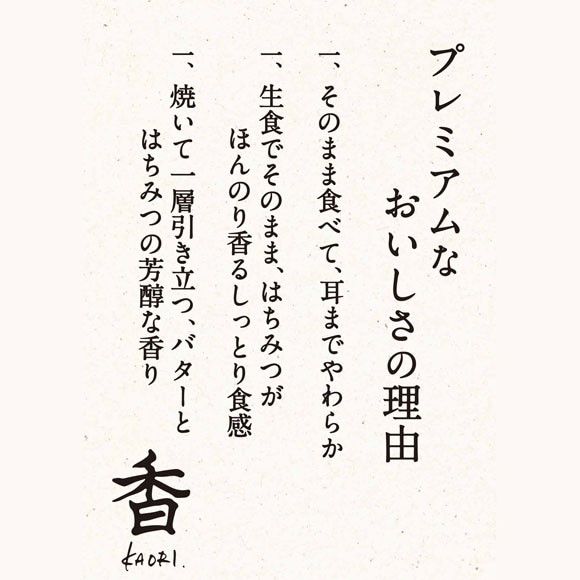 プレミアムな
おいしさの理由
一、そのまま食べて、耳までやわらか
一、生食でそのまま、はちみつが
ほんのり香るしっとり食感
一、焼いて一層引き立つ、バターと
はちみつの芳醇な香り
香
KAORI.